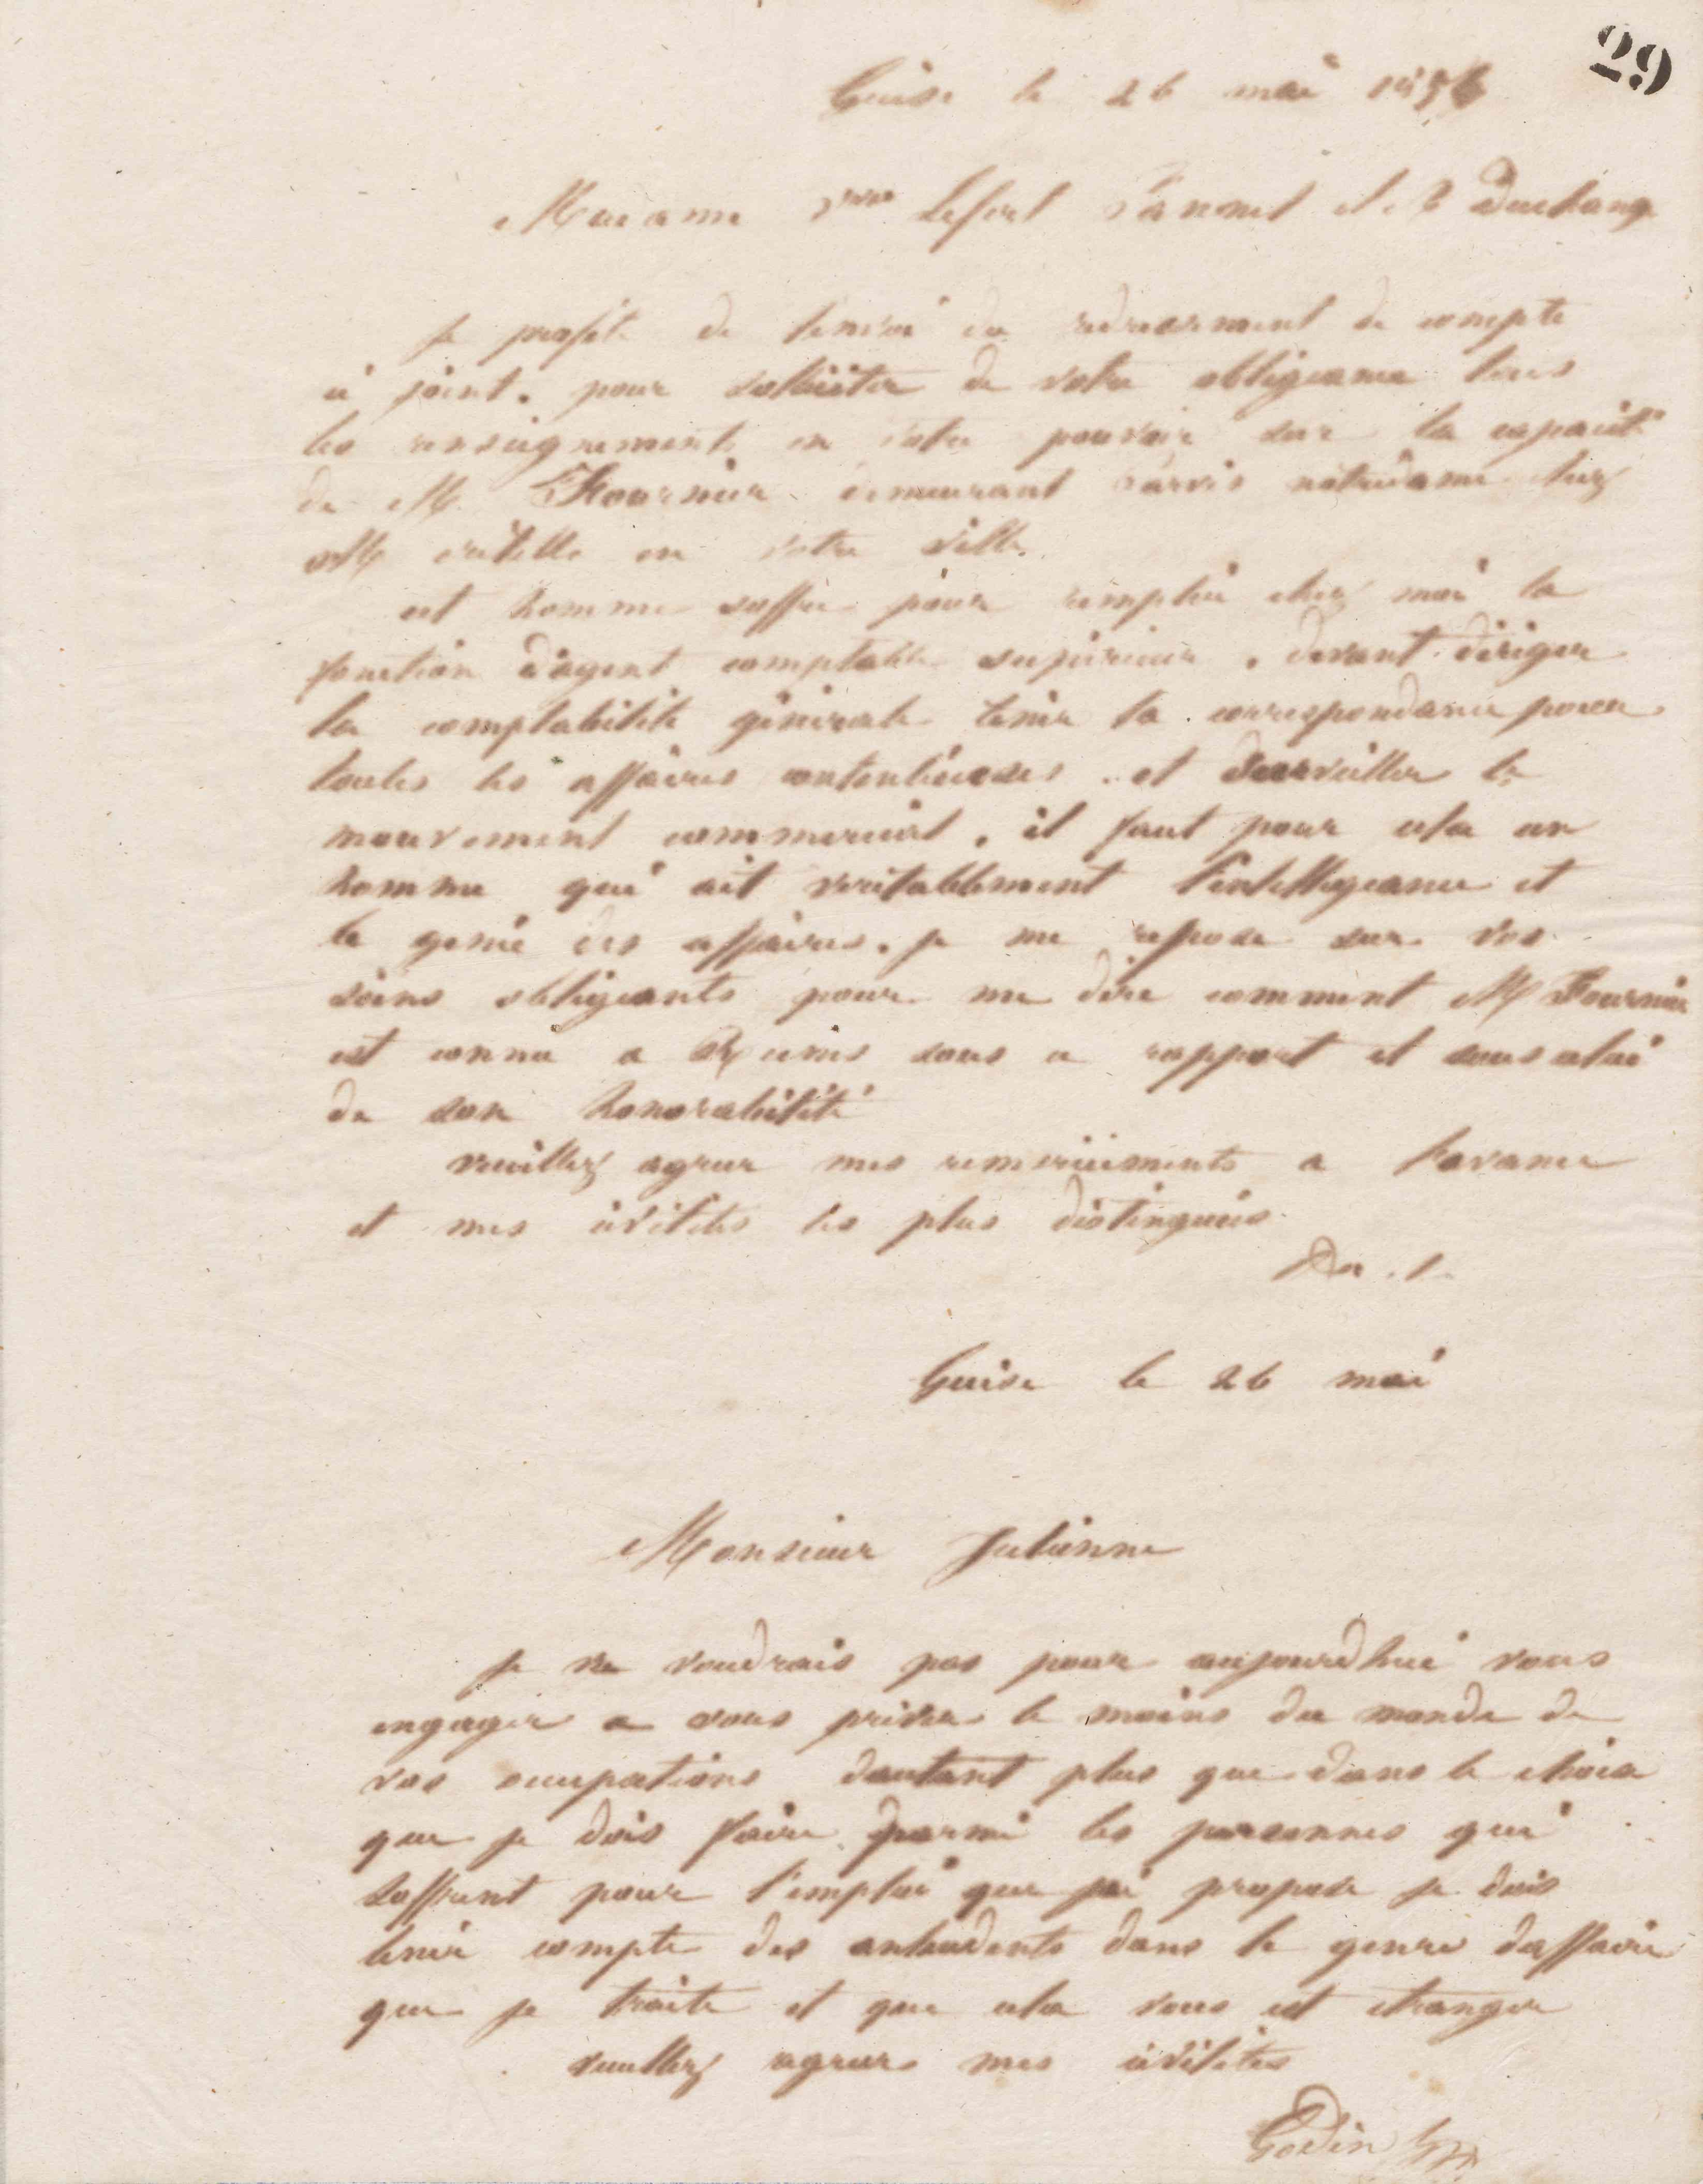 29
Guise le 26 mai
Madame Vve Lefort et Duchange
Je profite de lenvoi du redressement de compte
ci joint. pour solliciter de votre obligeance tous
les renseignements en votre pouvoir sur la capacité
de M. Fournier demeurant Parvis notredame chez
M en votre ville.
cet homme soffre pour remplir chez moi la
fonction d'agent comptable supérieur, devant diriger
la comptabilité générale tenir la correspondance pour
toutes les affaires contentieuses. et surveiller le
mouvement commercial, il faut pour cela un
homme qui ait veritablement l'intelligeance et
le genie des affaires. je me repose sur vos
soins obligeants pour me dire comment M Fournier
est connu a Reims sous ce rapport et sous celui
de son honorabilité
veuillez agreer mes remerciements a lavance
et mes civilités les plus distinguées
Guise le 26 mai
Monsieur Julienne
Je ne voudrais pas pour aujourdhui vous
engager a vous priver le moins du monde de
vos occupations dautant plus que dans le choix
que je dois faire parmi les personnes qui
soffrent pour l'emploi que jai proposé je dois
tenir compte des antecedents dans le genre daffaire
que je traite et que cela vous est etranger
veuillez agreer mes civilités
Godin